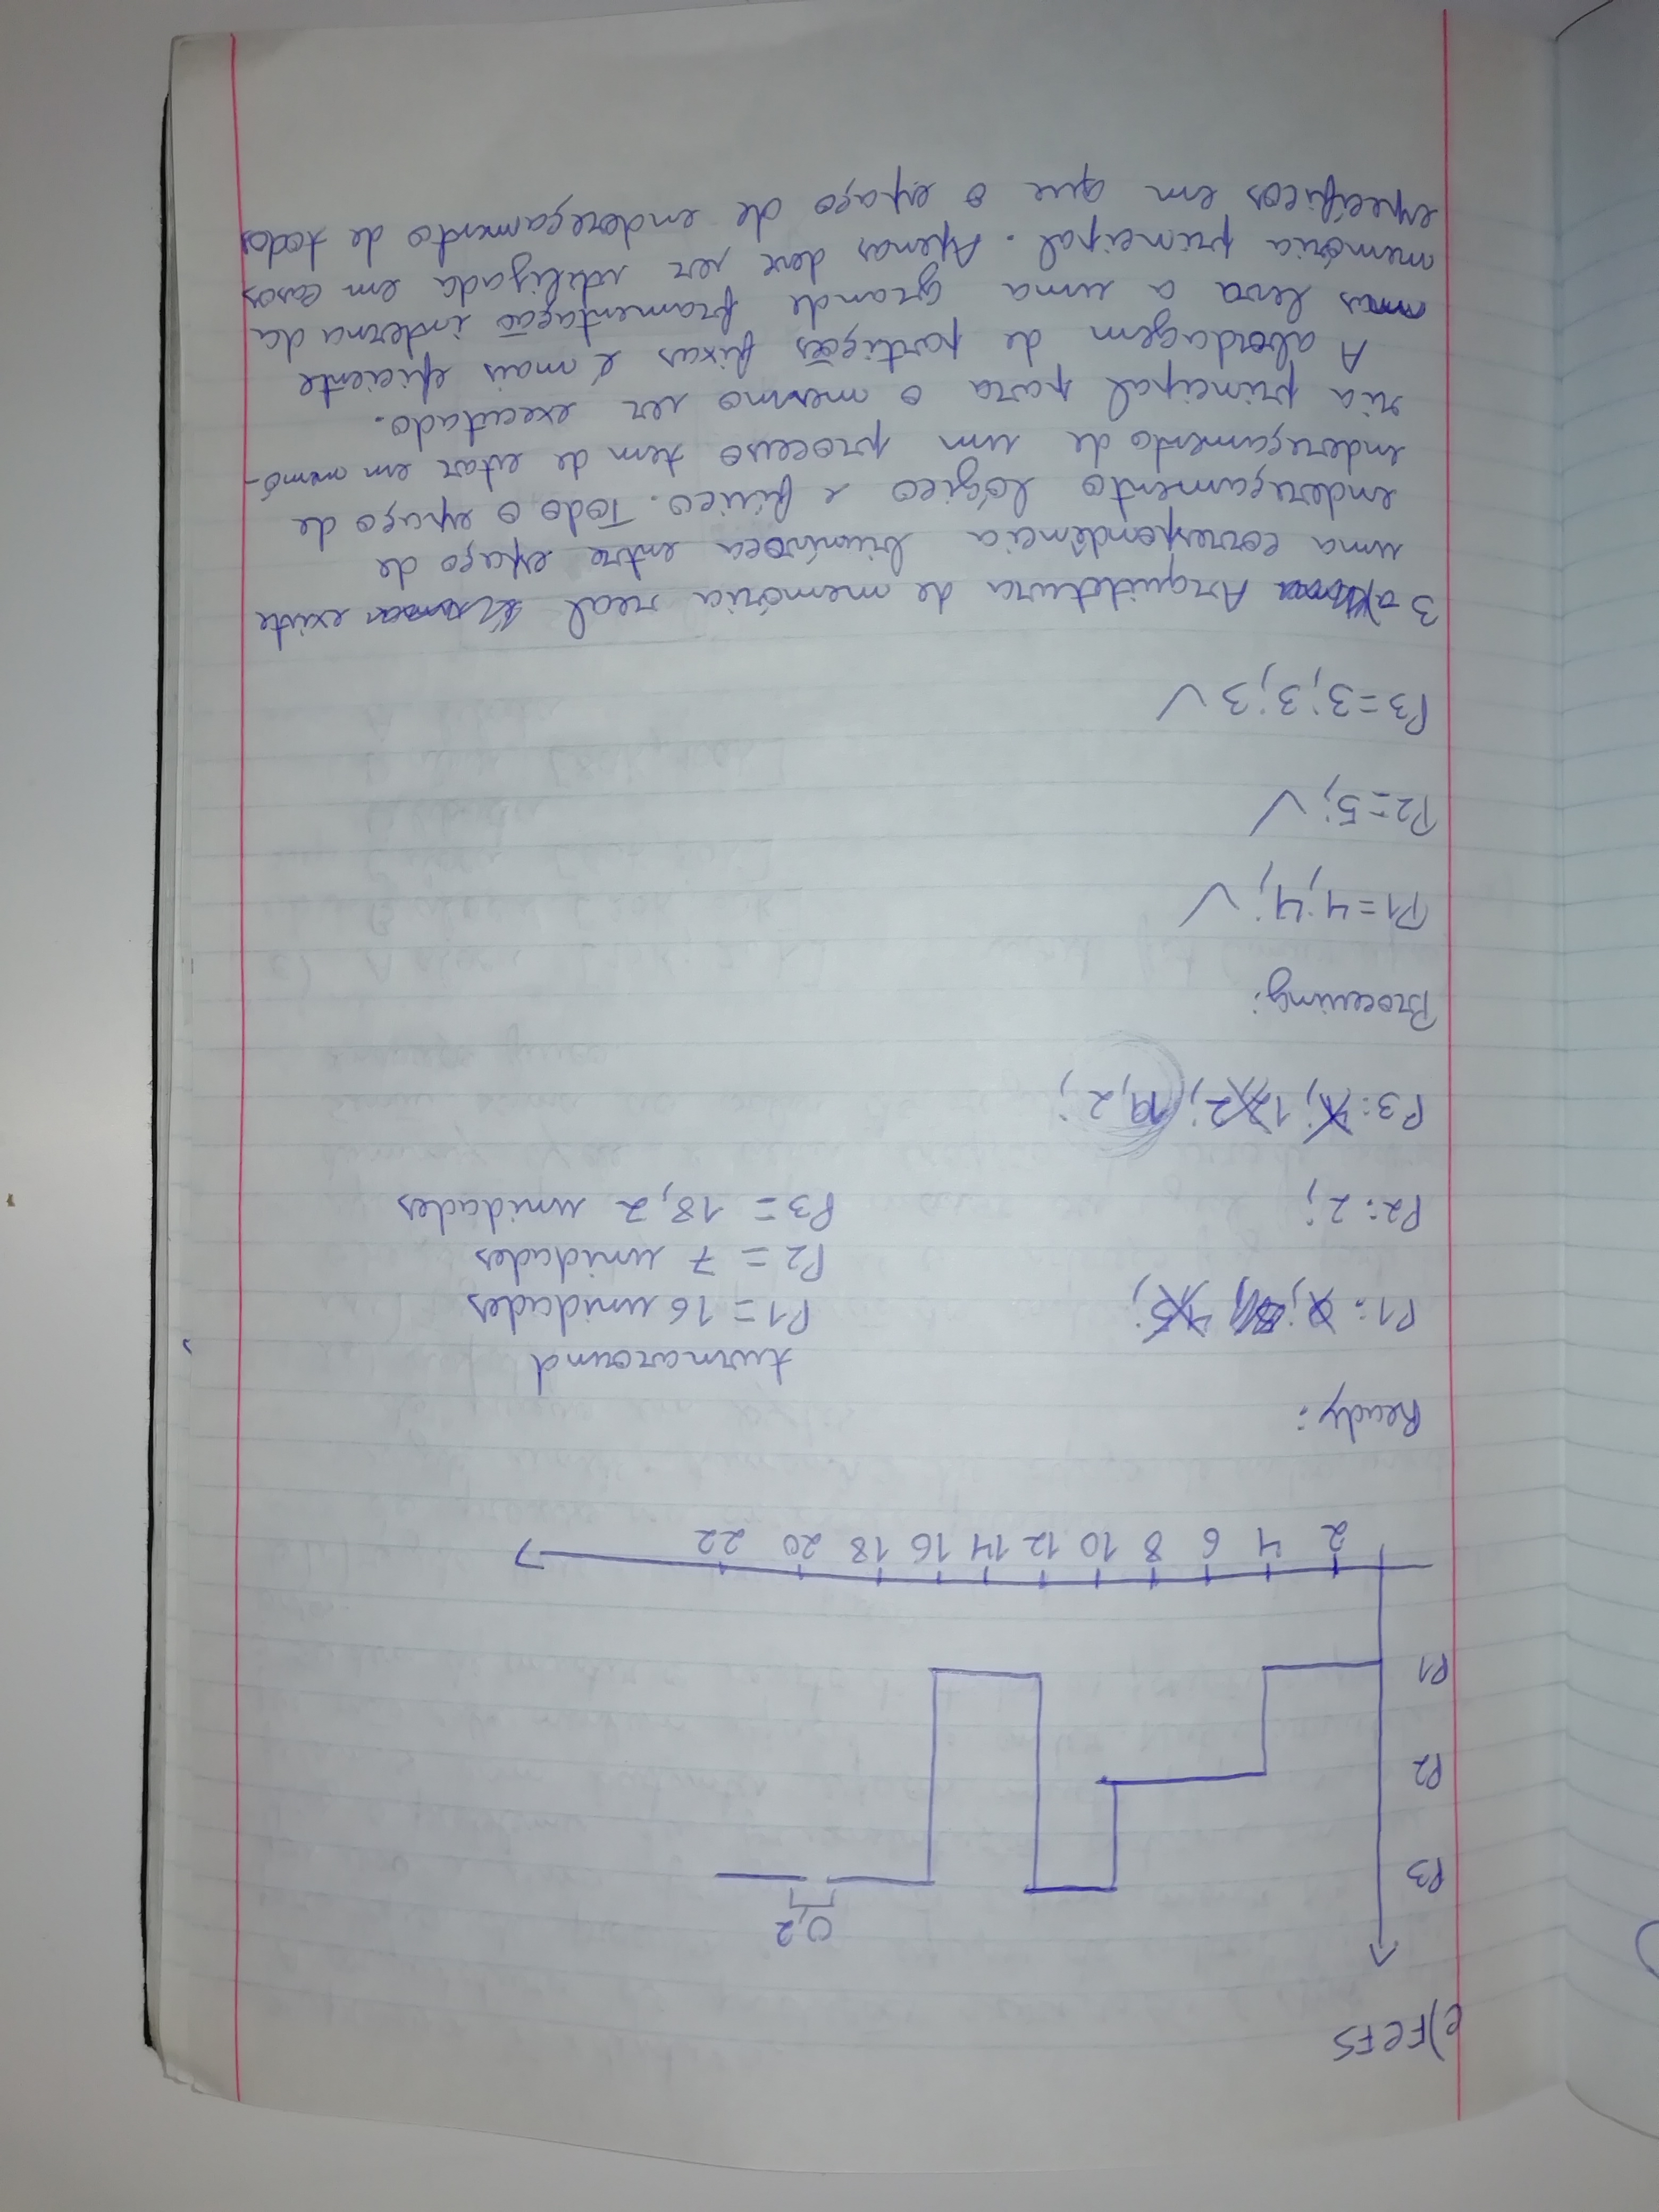 c) FCFS
0,2
P3
P2
P1
2 4 6 8 10 12 14 16 18 20 22
Ready:
turnaround
P1: 0; 4,5;
P1 = 16 unidades
P2 = 7 unidades
P2: 2;
P3 = 18,2 unidades
P3: 4; 12,2; 19,2;
Processing:
P1 = 4; 4; ✓
P2 = 5; ✓
P3 = 3; 3; 3 ✓
3 a) Arquitetura de memória real existe
uma correspondência biunívoca entre espaço de
endereçamento lógico e físico. Todo o espaço de
endereçamento de um processo tem de estar em memó-
ria principal para o mesmo ser executado.
A abordagem de partições fixas é mais eficiente
mas leva a uma grande framentação interna da
memória principal. Apenas deve ser utilizada em casos
específicos em que o espaço de endereçamento de todos